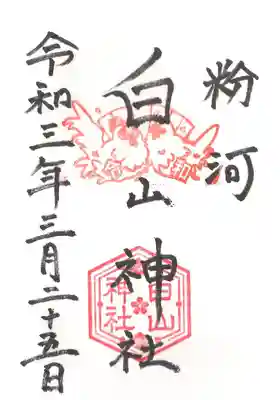 粉河
白山神社
令和三年三月二十五日
白山
神社
令
和